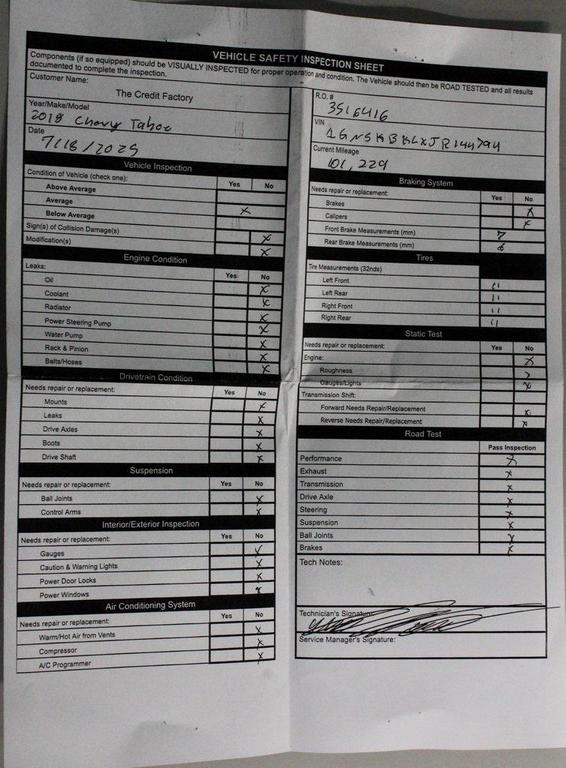 VEHICLE SAFETY INSPECTION SHEET
Components (if so equipped) should be VISUALLY INSPECTED for proper operation and condition. The Vehicle should then be ROAD TESTED and all results
documented to complete the inspection.
Customer Name:
The Credit Factory
Year/Make/Model
2018 Chevy Tahoe
Date
7/18/2025
Vehicle Inspection
Condition of Vehicle (check one): Yes No
Above Average
Average
Below Average X
Sign(s) of Collision Damage(s) X
Modification(s) X
Engine Condition
Leaks: Yes No
Oil X
Coolant X
Radiator X
Power Steering Pump X
Water Pump X
Rack & Pinion X
Belts/Hoses X
Drivetrain Condition
Needs repair or replacement: Yes No
Mounts X
Leaks X
Drive Axles X
Boots X
Drive Shaft X
Suspension
Needs repair or replacement: Yes No
Ball Joints X
Control Arms X
Interior/Exterior Inspection
Needs repair or replacement: Yes No
Gauges X
Caution & Warning Lights X
Power Door Locks X
Power Windows X
Air Conditioning System
Needs repair or replacement: Yes No
Warm/Hot Air from Vents X
Compressor X
A/C Programmer X
R.O. #
3516416
VIN
Current Mileage
101,229
Braking System
Needs repair or replacement: Yes No
Brakes X
Calipers X
Front Brake Measurements (mm) 7
Rear Brake Measurements (mm)
Tires
Tire Measurements (32nds)
Left Front 11
Left Rear 11
Right Front 11
Right Rear 11
Static Test
Needs repair or replacement: Yes No
Engine: X
Roughness X
Gauges/Lights X
Transmission Shift:
Forward Needs Repair/Replacement X
Reverse Needs Repair/Replacement X
Road Test
Pass Inspection
Performance X
Exhaust X
Transmission X
Drive Axle X
Steering X
Suspension X
Ball Joints X
Brakes X
Tech Notes:
Technician's Signature:
Service Manager's Signature: